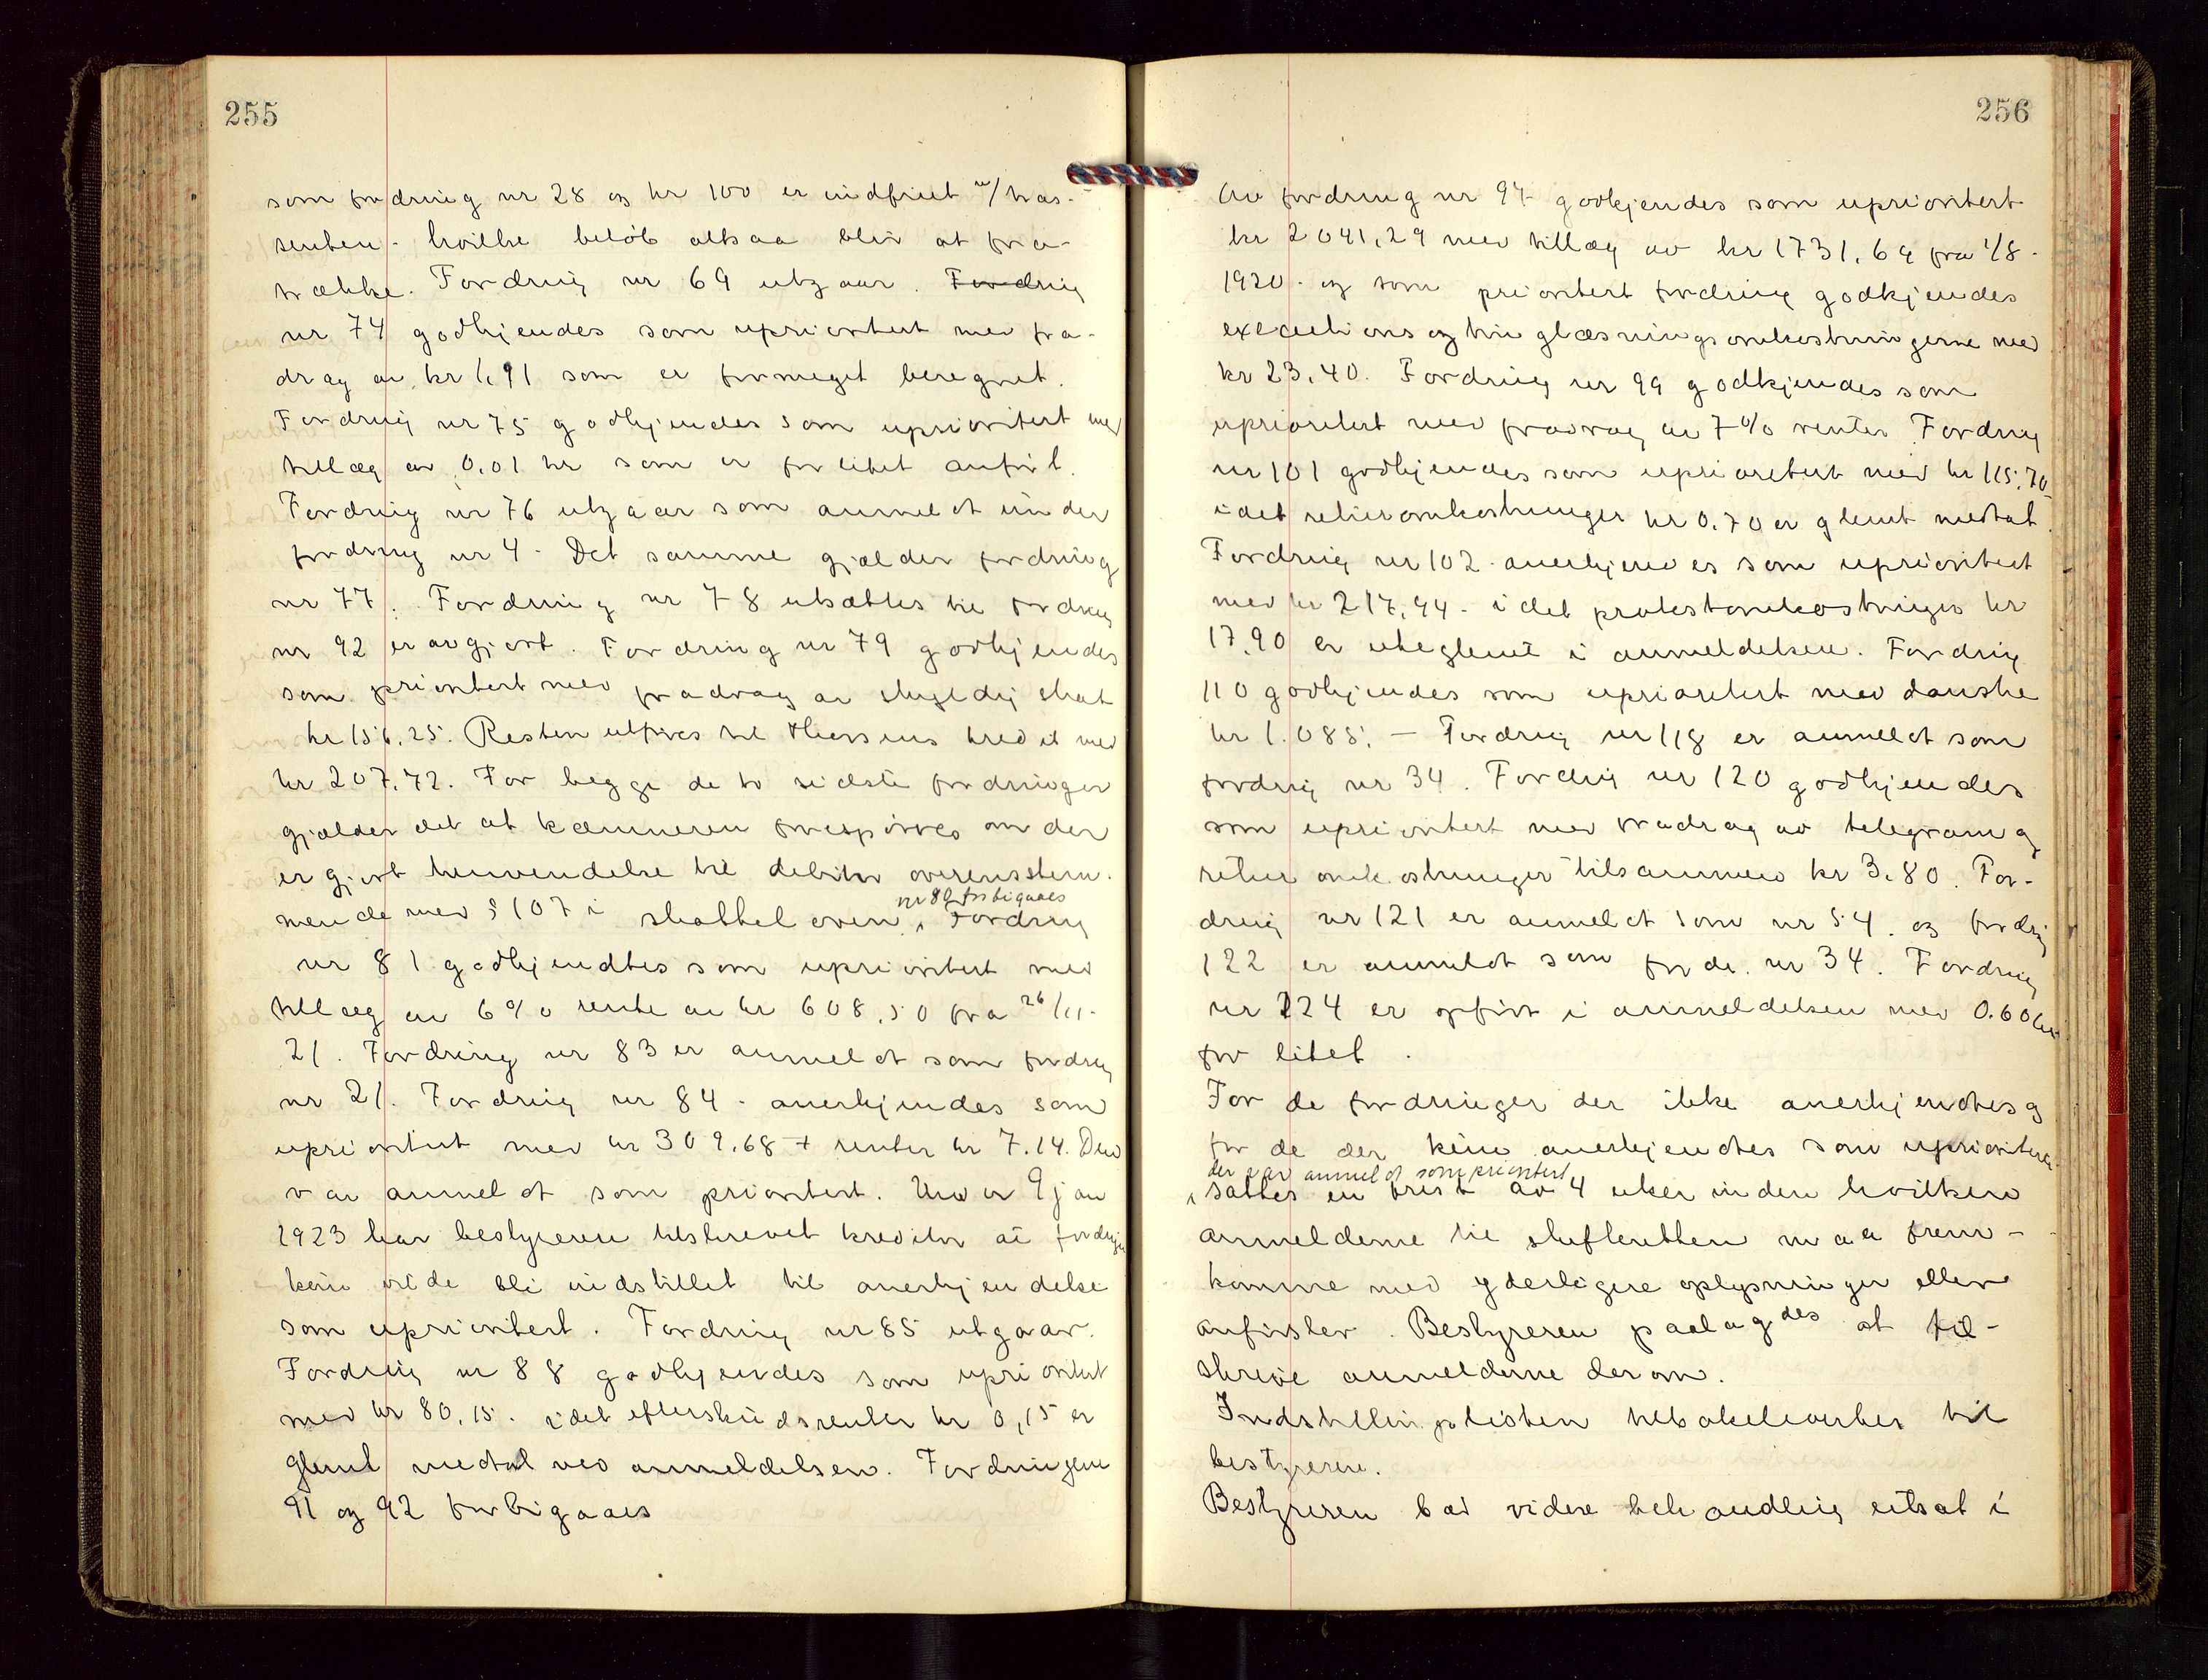 255
som fordring nr 28 og kr 100 er indfriet
senten - hvilke beløb altsaa blir at fra-
trække. Fordring nr 69 utgaar. Fordring
nr 74 godkjendes som uprioritert med fra-
drag av kr 1,91 som er formeget beregnet.
Fordring nr 75 godkjendes som uprioritert med
tillæg av 0,01 kr som er for litet anført.
Fordring nr 76 utgaar som anmeldt under
fordring nr 4 - Det samme gjælder fordring
nr 77. Fordring nr 78 utsættes til fordring
nr 92 er avgjort. Fordring nr 79 godkjendes
som prioritert med fradrag av skyldig skat
kr 156,25. Resten utføres til kredit med
kr 207,72. For begge de to sidste fordringer
gjælder det at kæmneren forespørres om der
er gjort henvendelse til debitor overensstem-
nr 80 forbigaaes
mende med § 107 i skatteloven, Fordring
nr 81 godkjendtes som uprioritert med
tillæg av 6% rente av kr 608,50 fra 26/11-
21. Fordring nr 83 er anmeldt som fordring
nr 21. Fordring nr 84 - anerkjendes som
uprioritert med kr 309,68 + renter kr 7.14. Den
var anmeldt som prioritert. Under 9 jan
1923 har bestyreren tilskrevet kreditor at fordringen
kun vilde bli indstillet til anerkjendelse
som uprioritert. Fordring nr 85 utgaar.
Fordring nr 88 godkjendes som uprioritert
med kr 80,15. idet efterskudsrenter kr 0,15 er
glemt medtat ved anmeldelsen. Fordringene
91 og 92 forbigaaes
256
Av fordring nr 94 godkjendes som uprioritert
kr 2041,29 med tillæg av kr 1731,64 fra 1/8-
1920. og som prioritert fordring godkjendes
executions og tinglæsningsomkostningerne med
kr 23,40. Fordring nr 99 godkjendes som
uprioritert med fradrag av 7% renter. Fordring
nr 101 godkjendes som uprioritert med kr 115,70
idet returomkostninger kr 0,70 er glemt medtat.
Fordring nr 102 - anerkjendes som uprioritert
med kr 217,94 - idet protestomkostninger kr
17,90 er uteglemt i anmeldelsen. Fordring
110 godkjendes som uprioritert med danske
kr 1.085, — Fordring nr 118 er anmeldt som
fordring nr 34. Fordring nr 120 godkjendes
som uprioritert med fradrag av telegram og
retur omkostninger tilsammen kr 3,80. For-
dring nr 121 er anmeldt som nr 54. og fordring
122 er anmeldt som ford. nr 34. Fordring
nr 124 er opført i anmeldelsen med 0.60 kr
for litet.
For de fordringer der ikke anerkjendtes og
for de der kun anerkjendtes som uprioriterte
der var anmeldt som prioritert
sattes en frist av 4 uker inden hvilken
anmelderne til skifteretten maa frem-
komme med yderligere oplysninger eller
anførsler. Bestyreren paalagdes at til-
skrive anmelderne derom.
Indstillingslisten tilbakeleverkes til
bestyreren.
Bestyreren bad videre behandling utsat i